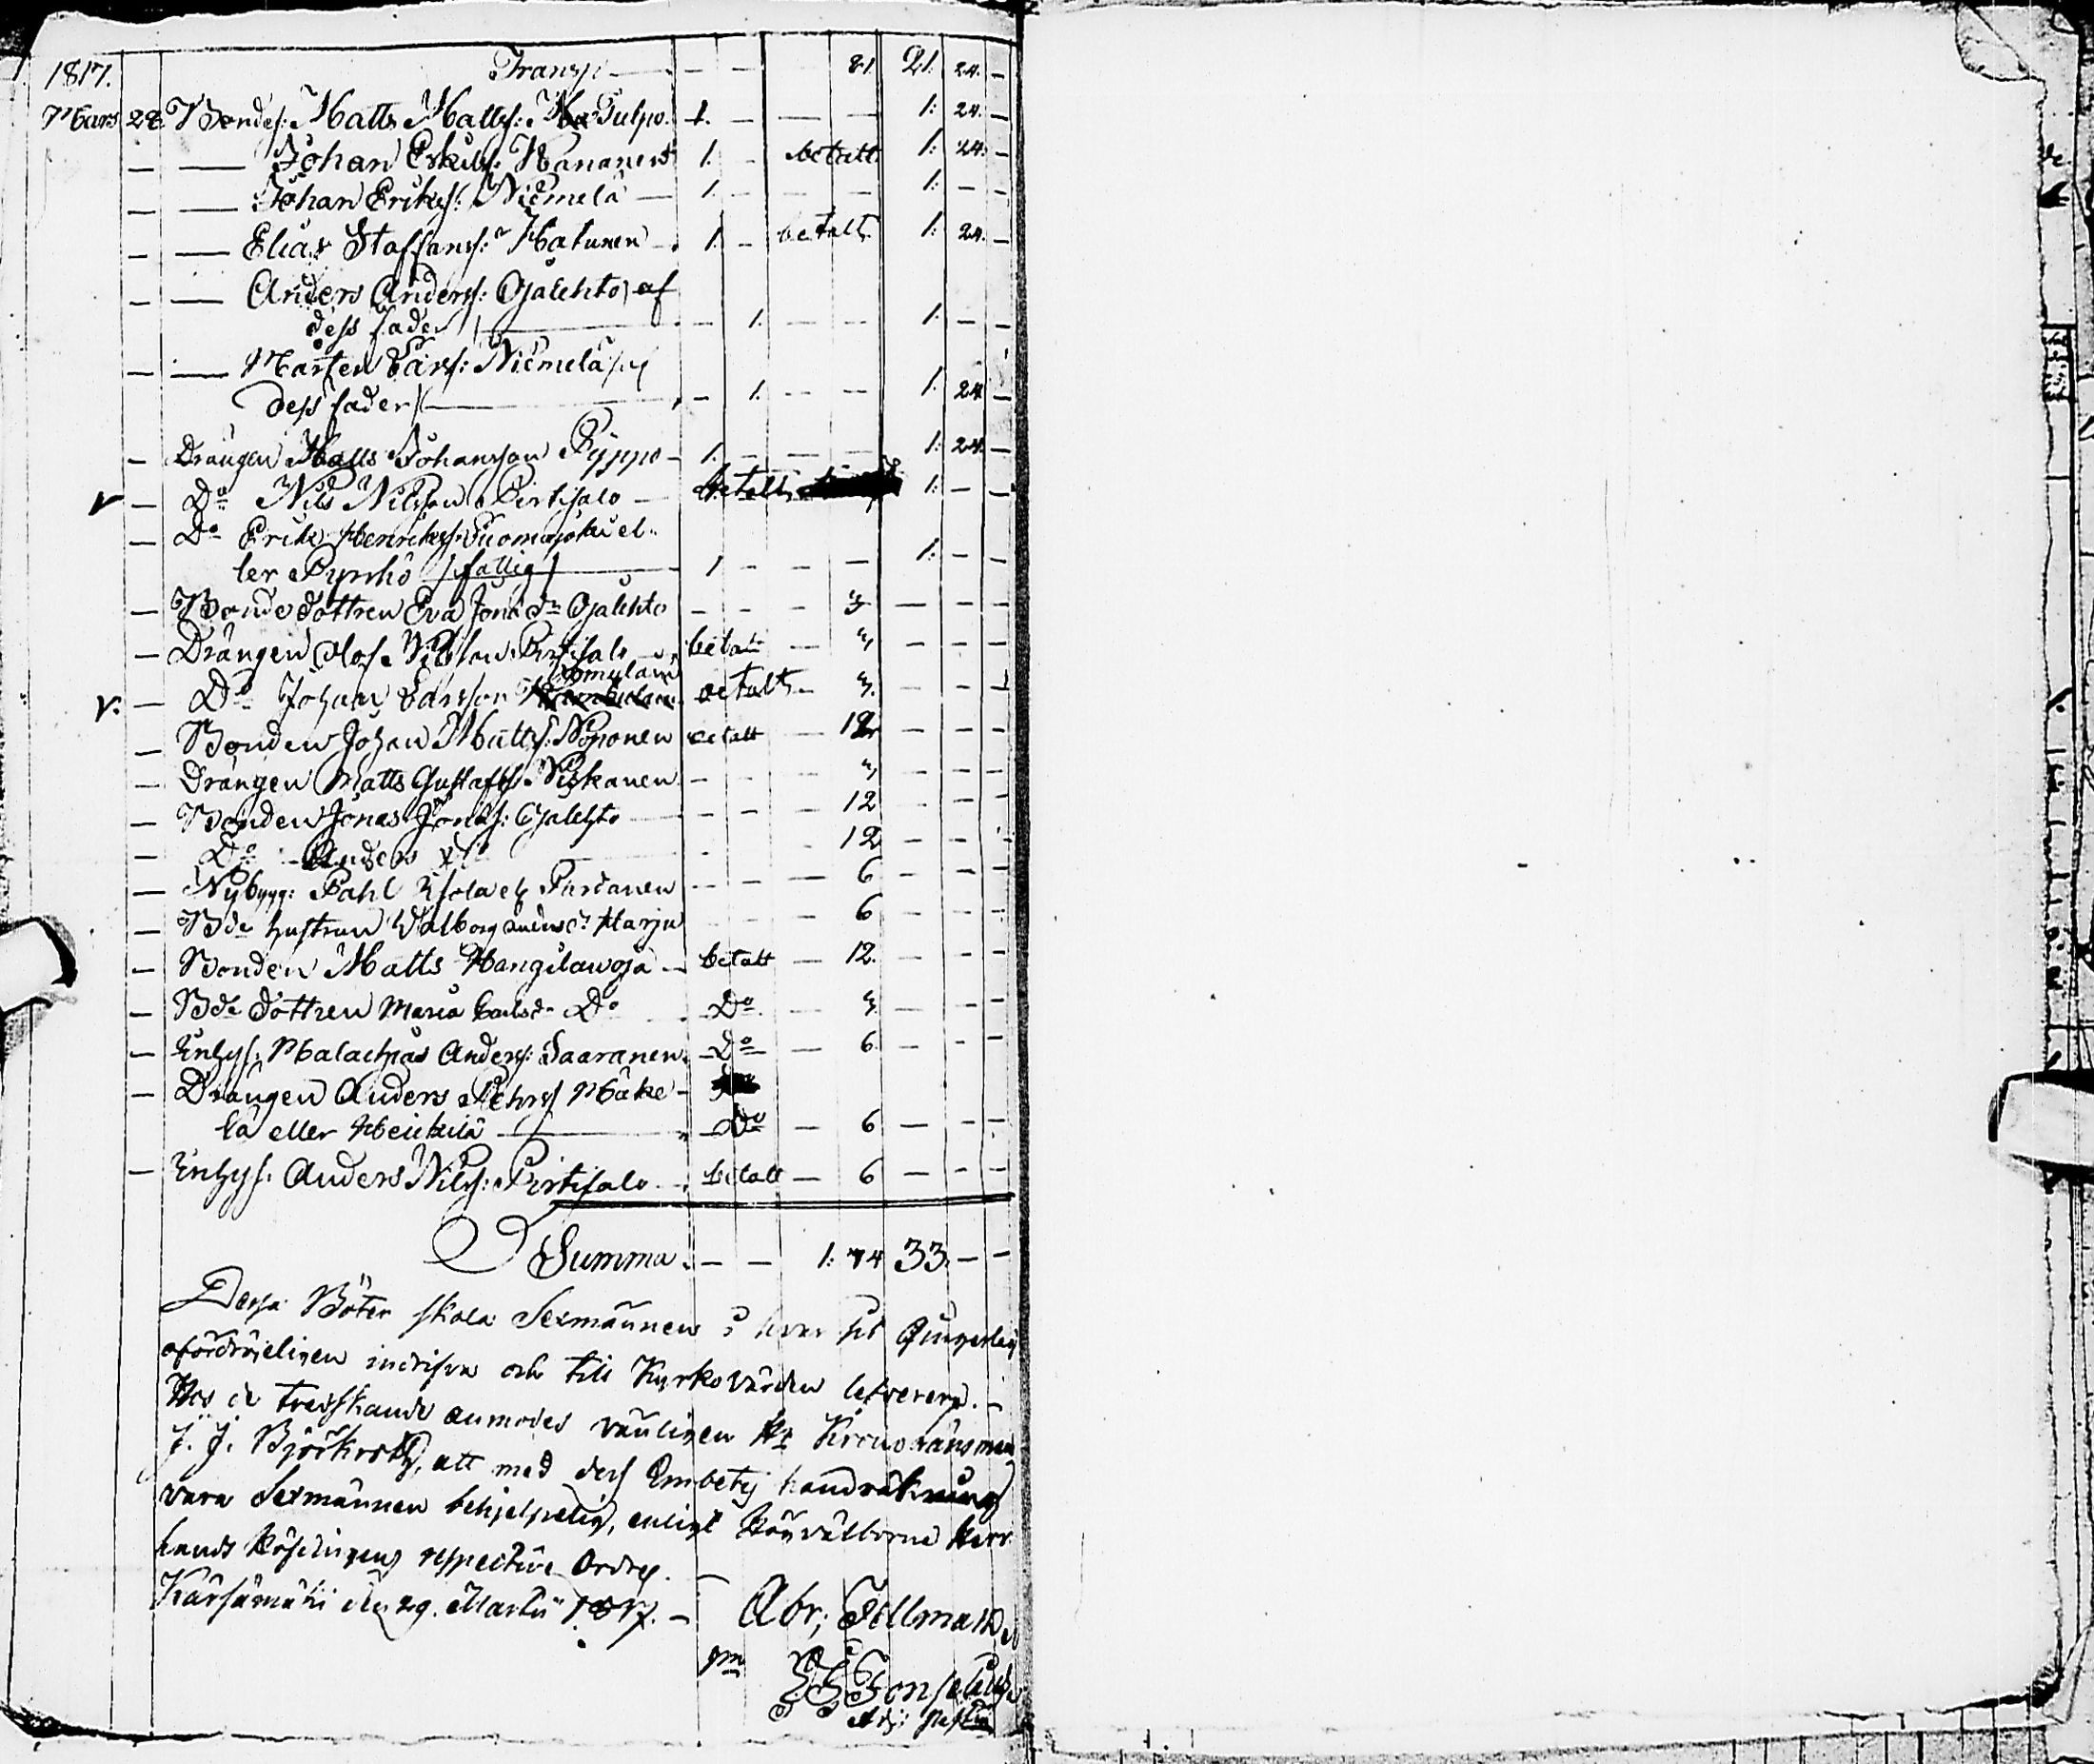 1817. Transp — — — 81 21: 24. —
Mars 28. Bondes: Matts Matts: Tulpo. 1. — — — 1: 24. —
— — Johan Eskils: Hananen 1. — betalt 1: 24. —
— — Johan Eriks: Niemelä — 1. — — — 1: — —
— — Elias Staffans: Hatunen — 1. — betalt 1: 24. —
— — Anders Anders: Ojalehto, af
dess fader — — 1. — — 1: — —
— — Mårten Lars: Niemelä
dess fader — — 1. — — 1: 24 —
— Drängen Matts Johansson Pyppo — 1. — — — 1: 24. —
v — Do Nils Nilsson Pirtisalo — betalt 1: — —
— Do Erik Henriks: Tuomijoki el
ler Pyrrhö /fattig/ — 1 — — — 1: — —
— Bonde dottren Eva Jonæ dr Ojalehto — — — 3 — — —
— Drängen Olof Nilsson Pirtisalo betalt — 3 — — —
v. — Do Johan Larsson betalt — 3. — — —
— Bonden Johan Matts: Noponen betalt — 12 — — —
— Drängen Matts Gustafs: Niskanen — — — 3 — — —
— Bonden Jonas Jonas: Ojalehto — — — 12 — — —
— Do Anders — — 12 — — —
— Nybygg: Pahl Purdanen — — — 6 — — —
— Bde hustrun Walborg Anders dr Harju — — 6 — — —
— Bonden Matts Hangilanoja — betalt — 12. — — —
— Bde dottren Maria Carlsdr Do — Do — 3 — — —
— Inhys: Malachias Anders: Saaranen — Do — 6. — — —
— Drängen Anders Pehrs Mäke —
lä eller Heikkilä — Do — 6 — — —
— Inhys: Anders Nils: Pirtisalo — betalt — 6 — — —
Summa. — — 1: 74 33. — —
Dessa Böter skola Sexmännen i hvar sit
ofördröjeligen indrifva och till Kyrkovärden leverera. —
Hos de tredskande anmodes vänligen Hr Kronolänsman
J. J. Björkroth, att med dess Embets handräkning
vara Sexmännen behjelpelig, enligt Högvälborne Herr
Lands Höfdingens respective Ordres.
Kärsämäki den 29. Martii 1817. — Abr; Fellman
Fonselius
Adj: Past: